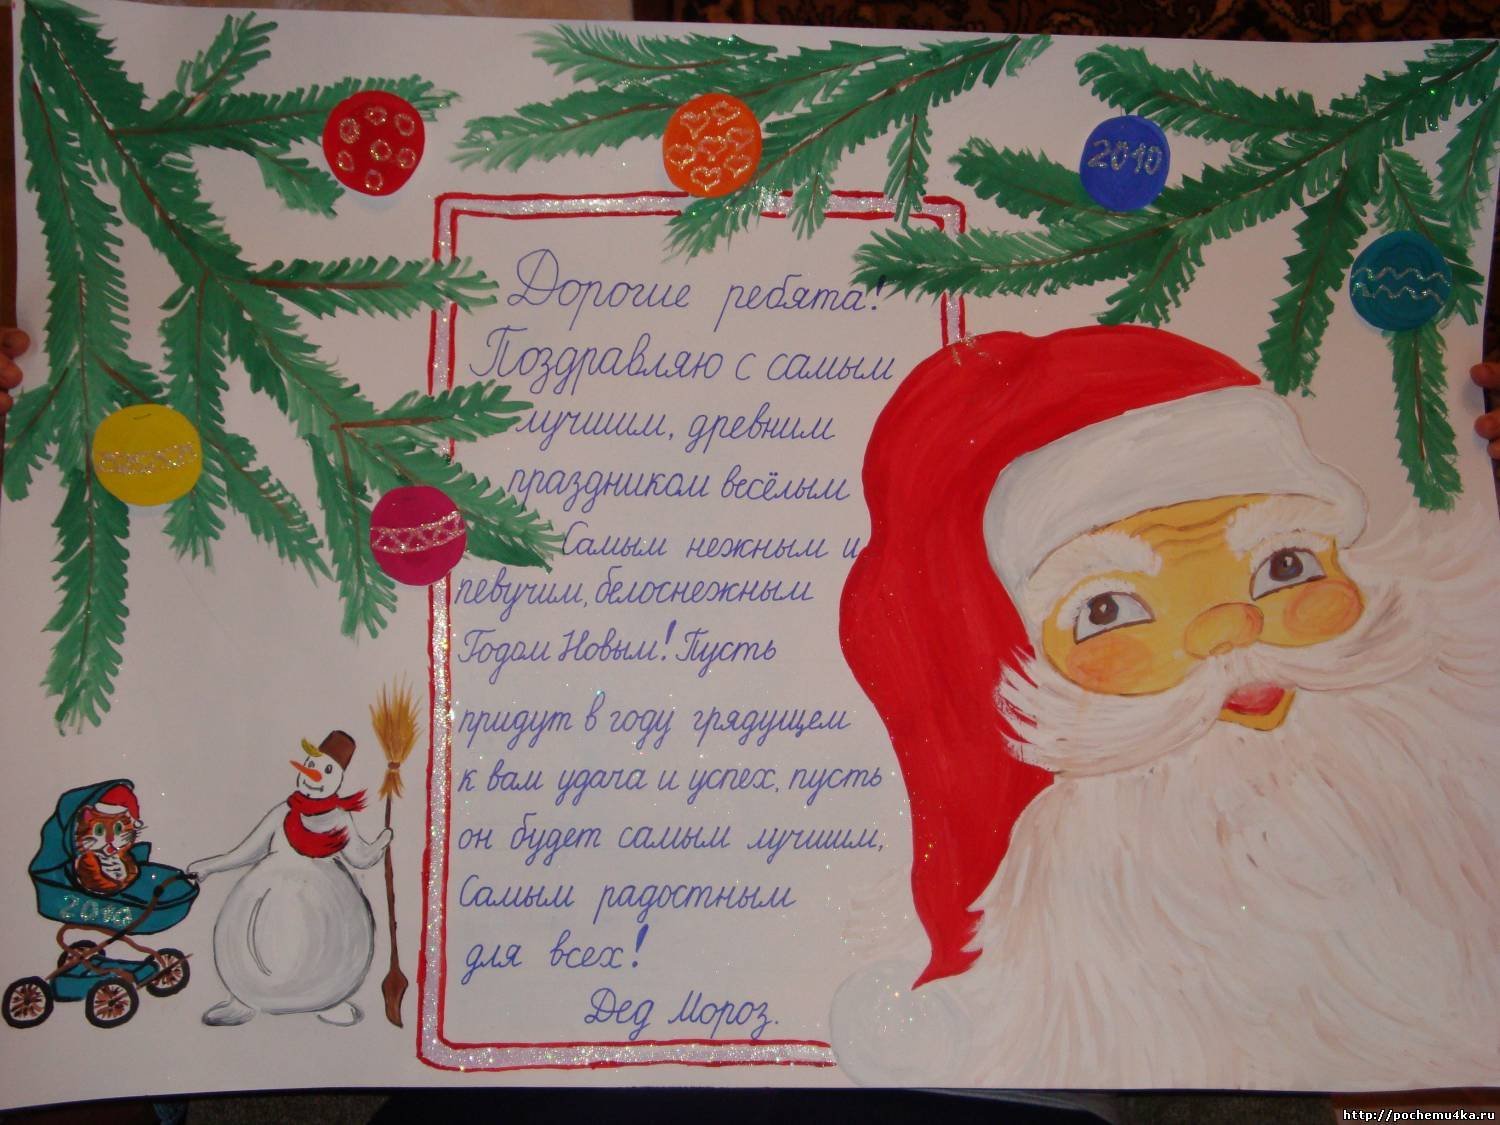 2010
Дорогие ребята!
Поздравляю с самым
лучшим, древним
праздником весёлым
Самым нежным и
певучим, белоснежным
Годом Новым! Пусть
придут в году грядущем
к вам удача и успех, пусть
он будет самым лучшим,
Самым радостным
для всех!
Дед Мороз.
2010
http://pochemu4ka.ru